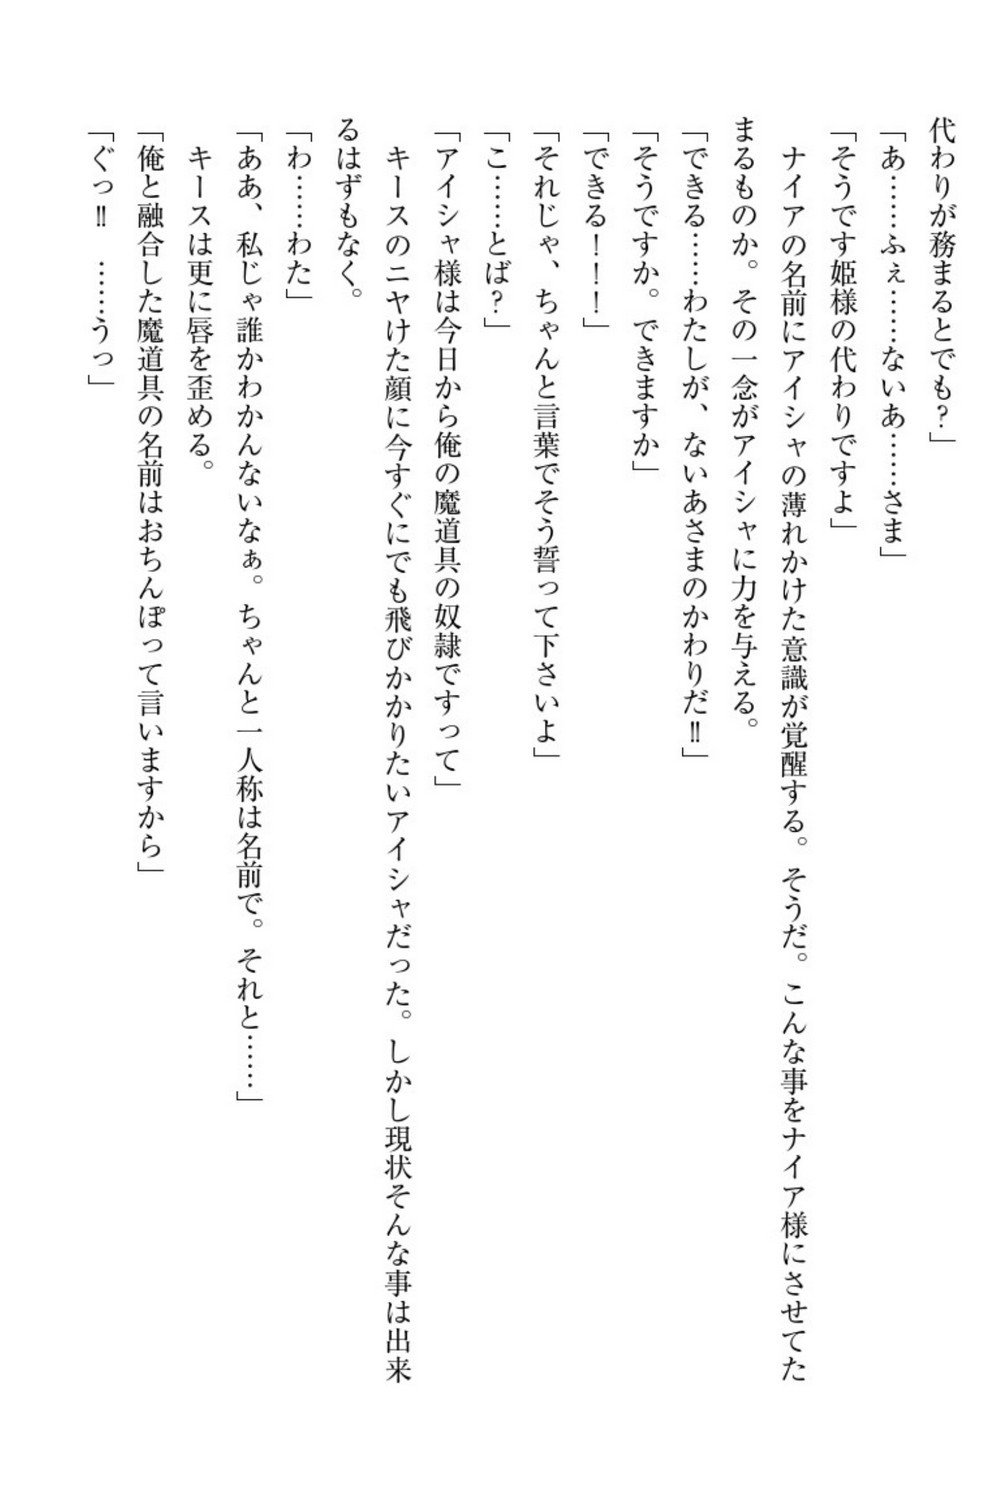 代わりが務まるとでも？」
「あ……ふぇ……ないあ……さま」
「そうです姫様の代わりですよ」
　ナイアの名前にアイシャの薄れかけた意識が覚醒する。そうだ。こんな事をナイア様にさせてた
まるものか。その一念がアイシャに力を与える。
「できる……わたしが、ないあさまのかわりだ‼」
「そうですか。できますか」
「できる！！！」
「それじゃ、ちゃんと言葉でそう誓って下さいよ」
「こ……とば？」
「アイシャ様は今日から俺の魔道具の奴隷ですって」
　キースのニヤけた顔に今すぐにでも飛びかかりたいアイシャだった。しかし現状そんな事は出来
るはずもなく。
「わ……わた」
「ああ、私じゃ誰かわかんないなぁ。ちゃんと一人称は名前で。それと……」
　キースは更に唇を歪める。
「俺と融合した魔道具の名前はおちんぽって言いますから」
「ぐっ‼　……うっ」